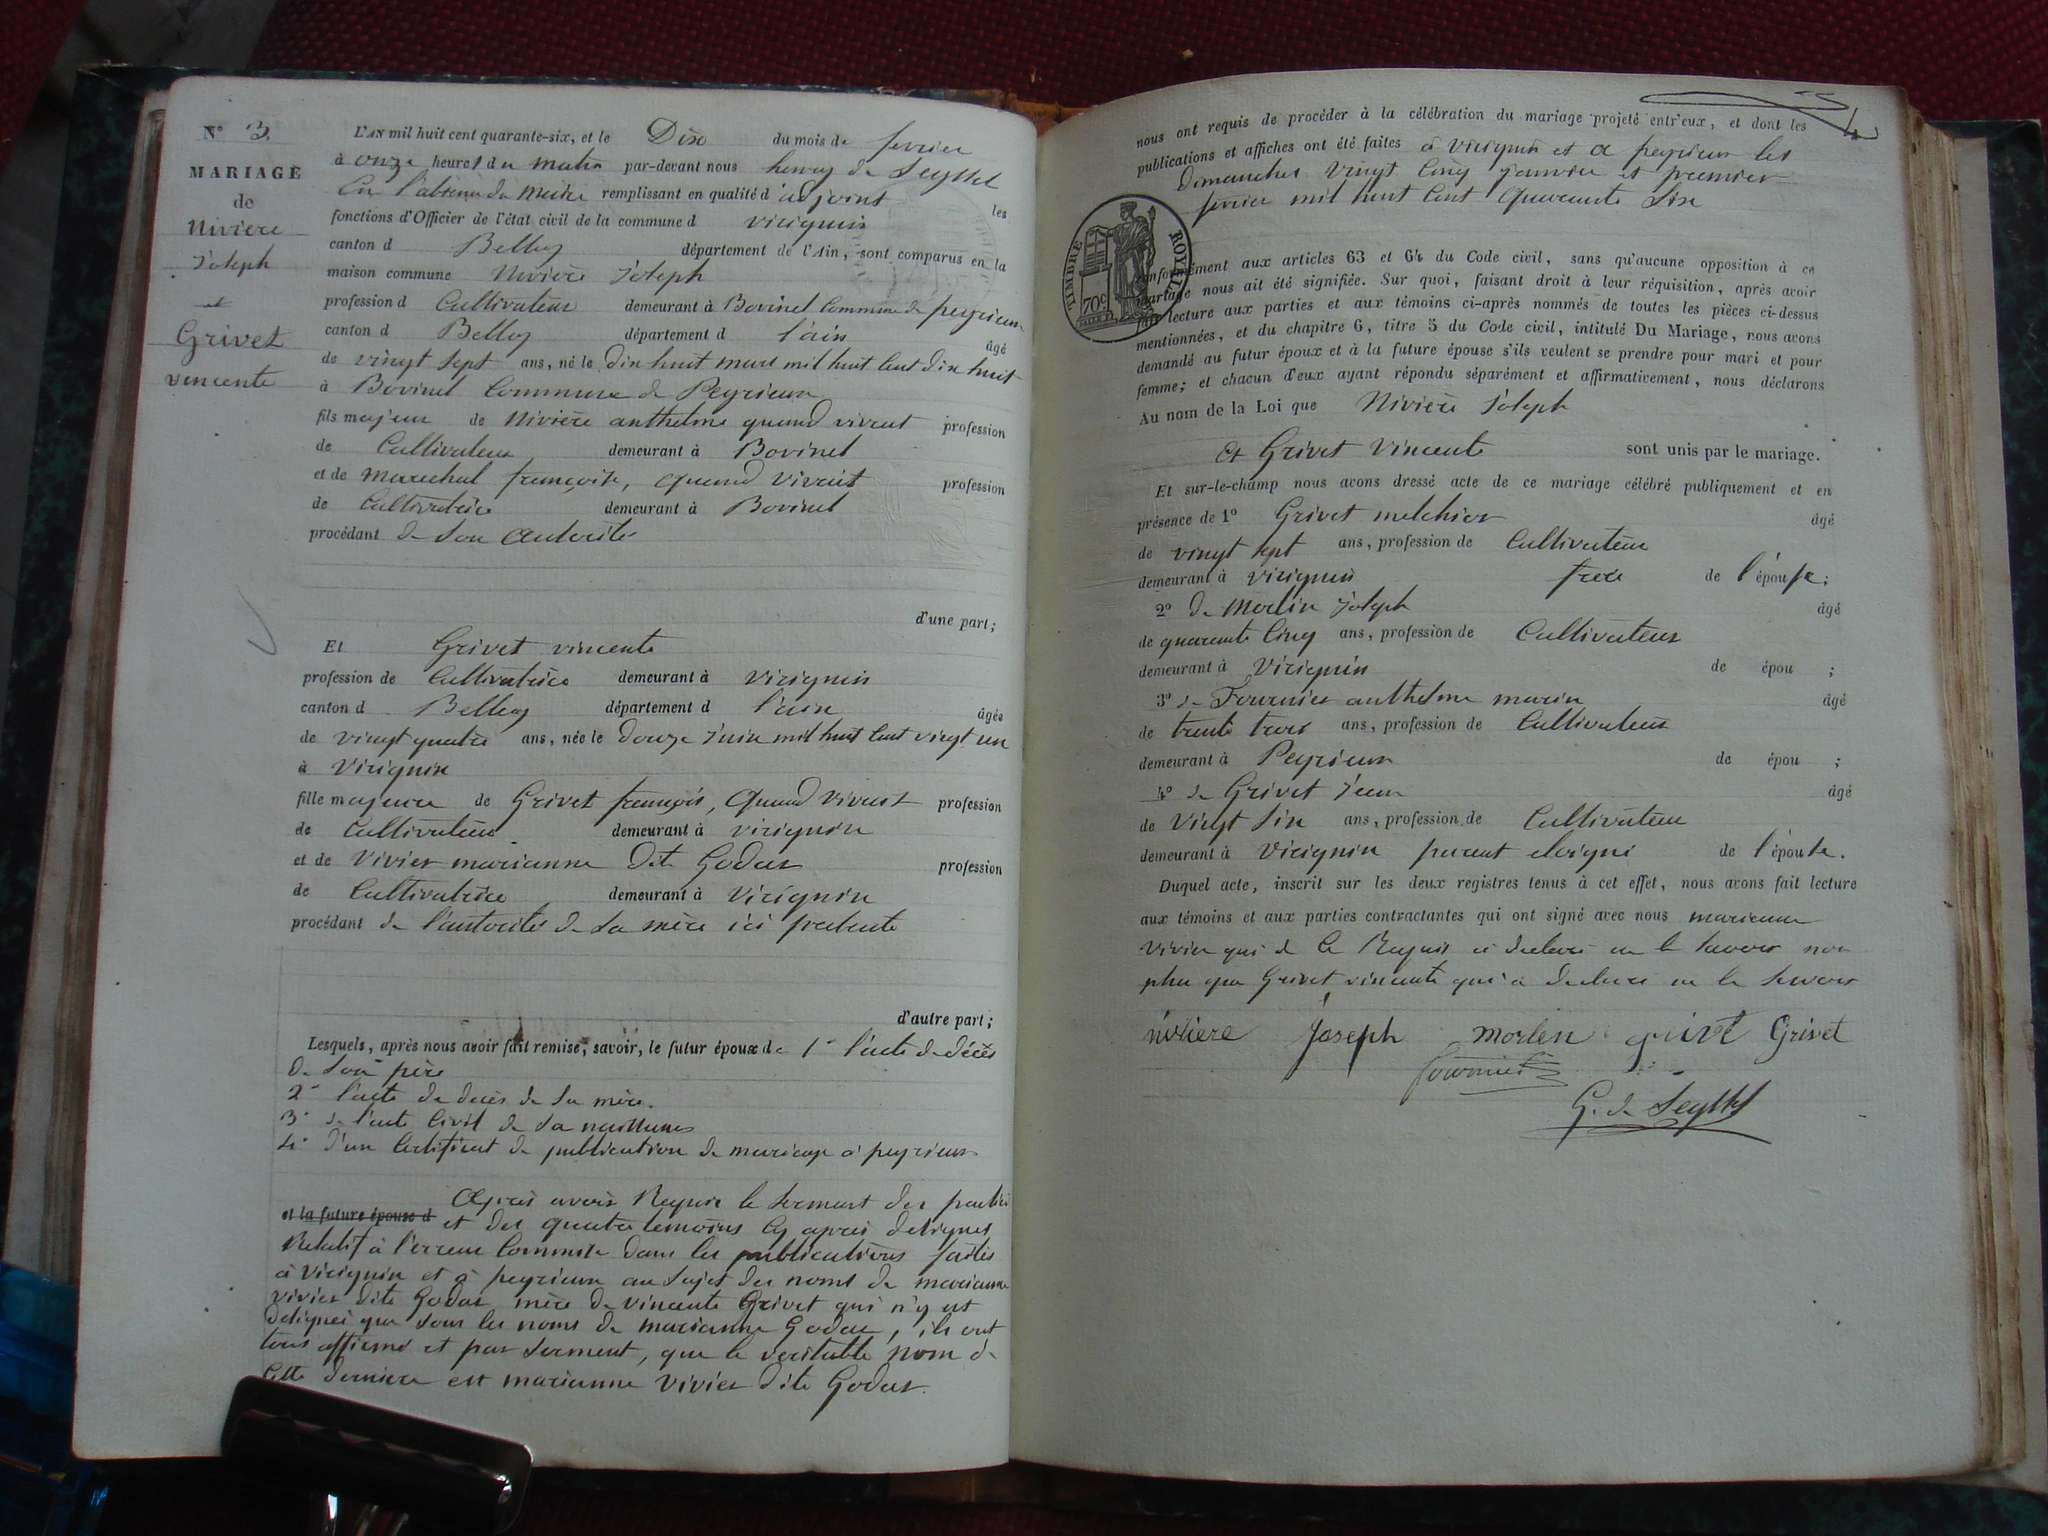 N° 3.
MARIAGE
de
Nivière
Joseph
et
Grivet
vincente
L'AN mil huit cent quarante-six, et le Dix du mois de fevrier
à onze heures du matin par-devant nous henry de Seyssel
En l'absence du Maire remplissant en qualité d'adjoint les
fonctions d'Officier de l'état civil de la commune d virignin
canton d Belley département de l'Ain, sont comparus en la
maison commune Nivière Joseph
profession d Cultivateur demeurant à Bovinel Commune de peyrieux
canton d Belley département d l'ain âgé
de vingt sept ans, né le dix huit mars mil huit Cent dix huit
à Bovinel Commune de Peyrieux
fils majeur de Nivière anthelme quand vivait profession
de Cultivateur demeurant à Bovinel
et de marechal françoise, quand vivait profession
de Cultivatrice demeurant à Bovinel
procédant de son autorité
d'une part;
Et Grivet vincente
profession de Cultivatrice demeurant à virignin
canton d Belley département d l'ain âgée
de vingt quatre ans, née le douze Juin mil huit Cent vingt un
à Virignin
fille majeure de Grivet françois, quand vivait profession
de Cultivateur demeurant à virignin
et de Vivier marianne dite Godar profession
de Cultivatrice demeurant à Virignin
procédant de l'autorité de sa mère ici présente
d'autre part;
Lesquels, après nous avoir fait remise, savoir, le futur époux de 1° l'acte de décès
de son père
2° l'acte de décès de sa mère.
3° de l'acte Civil de sa naissance
4° d'un Certificat de publication de mariage à peyrieux
Après avoir Requis le serment des parties
et la future épouse d et des quatre temoins Cy après designés
Relatif à l'erreur Commise dans les publications faites
à Virignin et à peyrieux au sujet des noms de marianne
vivier dite Godar mère de vincente Grivet qui n'y est
designée que sous les noms de marianne Godar, ils ont
tous affirmé et par serment, que le veritable nom de
Cette derniere est marianne Vivier dite Godar.
nous ont requis de procéder à la célébration du mariage projeté entr'eux, et dont les
publications et affiches ont été faites à virignin et a peyrieux les
dimanches vingt Cinq Janvier et premier
fevrier mil huit Cent Quarante Six
TIMBRE ROYAL
70c
conformément aux articles 63 et 64 du Code civil, sans qu'aucune opposition à ce
mariage nous ait été signifiée. Sur quoi, faisant droit à leur réquisition, après avoir
fait lecture aux parties et aux témoins ci-après nommés de toutes les pièces ci-dessus
mentionnées, et du chapitre 6, titre 5 du Code civil, intitulé Du Mariage, nous avons
demandé au futur époux et à la future épouse s'ils veulent se prendre pour mari et pour
femme; et chacun d'eux ayant répondu séparément et affirmativement, nous déclarons
Au nom de la Loi que Nivière Joseph
et Grivet Vincente sont unis par le mariage.
Et sur-le-champ nous avons dressé acte de ce mariage célébré publiquement et en
présence de 1° Grivet melchior âgé
de vingt sept ans, profession de Cultivateur
demeurant à virignin frere de l'épouse;
2° de Morlin Joseph âgé
de quarante Cinq ans, profession de Cultivateur
demeurant à Virignin de épou ;
3° de Fournier anthelme marin âgé
de trente trois ans, profession de Cultivateur
demeurant à Peyrieux de épou ;
4° de Grivet Jean âgé
de Vingt Six ans, profession de Cultivateur
demeurant à Virignin parent eloigné de l'épouse.
Duquel acte, inscrit sur les deux registres tenus à cet effet, nous avons fait lecture
aux témoins et aux parties contractantes qui ont signé avec nous marianne
Vivier qui de Ce Requis a declaré ne le savoir non
plus que Grivet vincente qui a declaré ne le savoir
niviere Joseph morlen grivt Grivet
fournier
G. de Seyssel